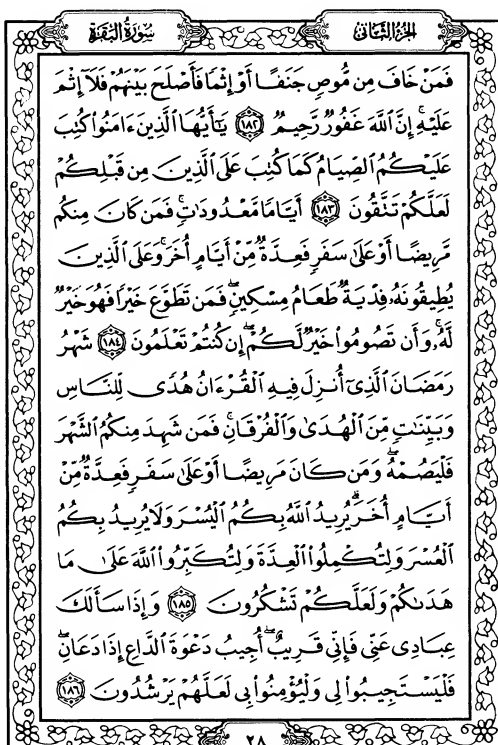 سُورَةُ الْبَقَرَةِ الجُزْءُ الثَّانِي
فَمَنْ خَافَ مِن مُّوصٍ جَنَفًا أَوْ إِثْمًا فَأَصْلَحَ بَيْنَهُمْ فَلَآ إِثْمَ
عَلَيْهِ ۚ إِنَّ ٱللَّهَ غَفُورٌ رَّحِيمٌ ١٨٢ يَٰٓأَيُّهَا ٱلَّذِينَ ءَامَنُوا۟ كُتِبَ
عَلَيْكُمُ ٱلصِّيَامُ كَمَا كُتِبَ عَلَى ٱلَّذِينَ مِن قَبْلِكُمْ
لَعَلَّكُمْ تَتَّقُونَ ١٨٣ أَيَّامًا مَّعْدُودَٰتٍ ۚ فَمَن كَانَ مِنكُم
مَّرِيضًا أَوْ عَلَىٰ سَفَرٍ فَعِدَّةٌ مِّنْ أَيَّامٍ أُخَرَ ۚ وَعَلَى ٱلَّذِينَ
يُطِيقُونَهُۥ فِدْيَةٌ طَعَامُ مِسْكِينٍ ۖ فَمَن تَطَوَّعَ خَيْرًا فَهُوَ خَيْرٌ
لَّهُۥ ۚ وَأَن تَصُومُوا۟ خَيْرٌ لَّكُمْ ۖ إِن كُنتُمْ تَعْلَمُونَ ١٨٤ شَهْرُ
رَمَضَانَ ٱلَّذِىٓ أُنزِلَ فِيهِ ٱلْقُرْءَانُ هُدًى لِّلنَّاسِ
وَبَيِّنَٰتٍ مِّنَ ٱلْهُدَىٰ وَٱلْفُرْقَانِ ۚ فَمَن شَهِدَ مِنكُمُ ٱلشَّهْرَ
فَلْيَصُمْهُ ۖ وَمَن كَانَ مَرِيضًا أَوْ عَلَىٰ سَفَرٍ فَعِدَّةٌ مِّنْ
أَيَّامٍ أُخَرَ ۗ يُرِيدُ ٱللَّهُ بِكُمُ ٱلْيُسْرَ وَلَا يُرِيدُ بِكُمُ
ٱلْعُسْرَ وَلِتُكْمِلُوا۟ ٱلْعِدَّةَ وَلِتُكَبِّرُوا۟ ٱللَّهَ عَلَىٰ مَا
هَدَىٰكُمْ وَلَعَلَّكُمْ تَشْكُرُونَ ١٨٥ وَإِذَا سَأَلَكَ
عِبَادِى عَنِّى فَإِنِّى قَرِيبٌ ۖ أُجِيبُ دَعْوَةَ ٱلدَّاعِ إِذَا دَعَانِ ۖ
فَلْيَسْتَجِيبُوا۟ لِى وَلْيُؤْمِنُوا۟ بِى لَعَلَّهُمْ يَرْشُدُونَ ١٨٦
٢٨